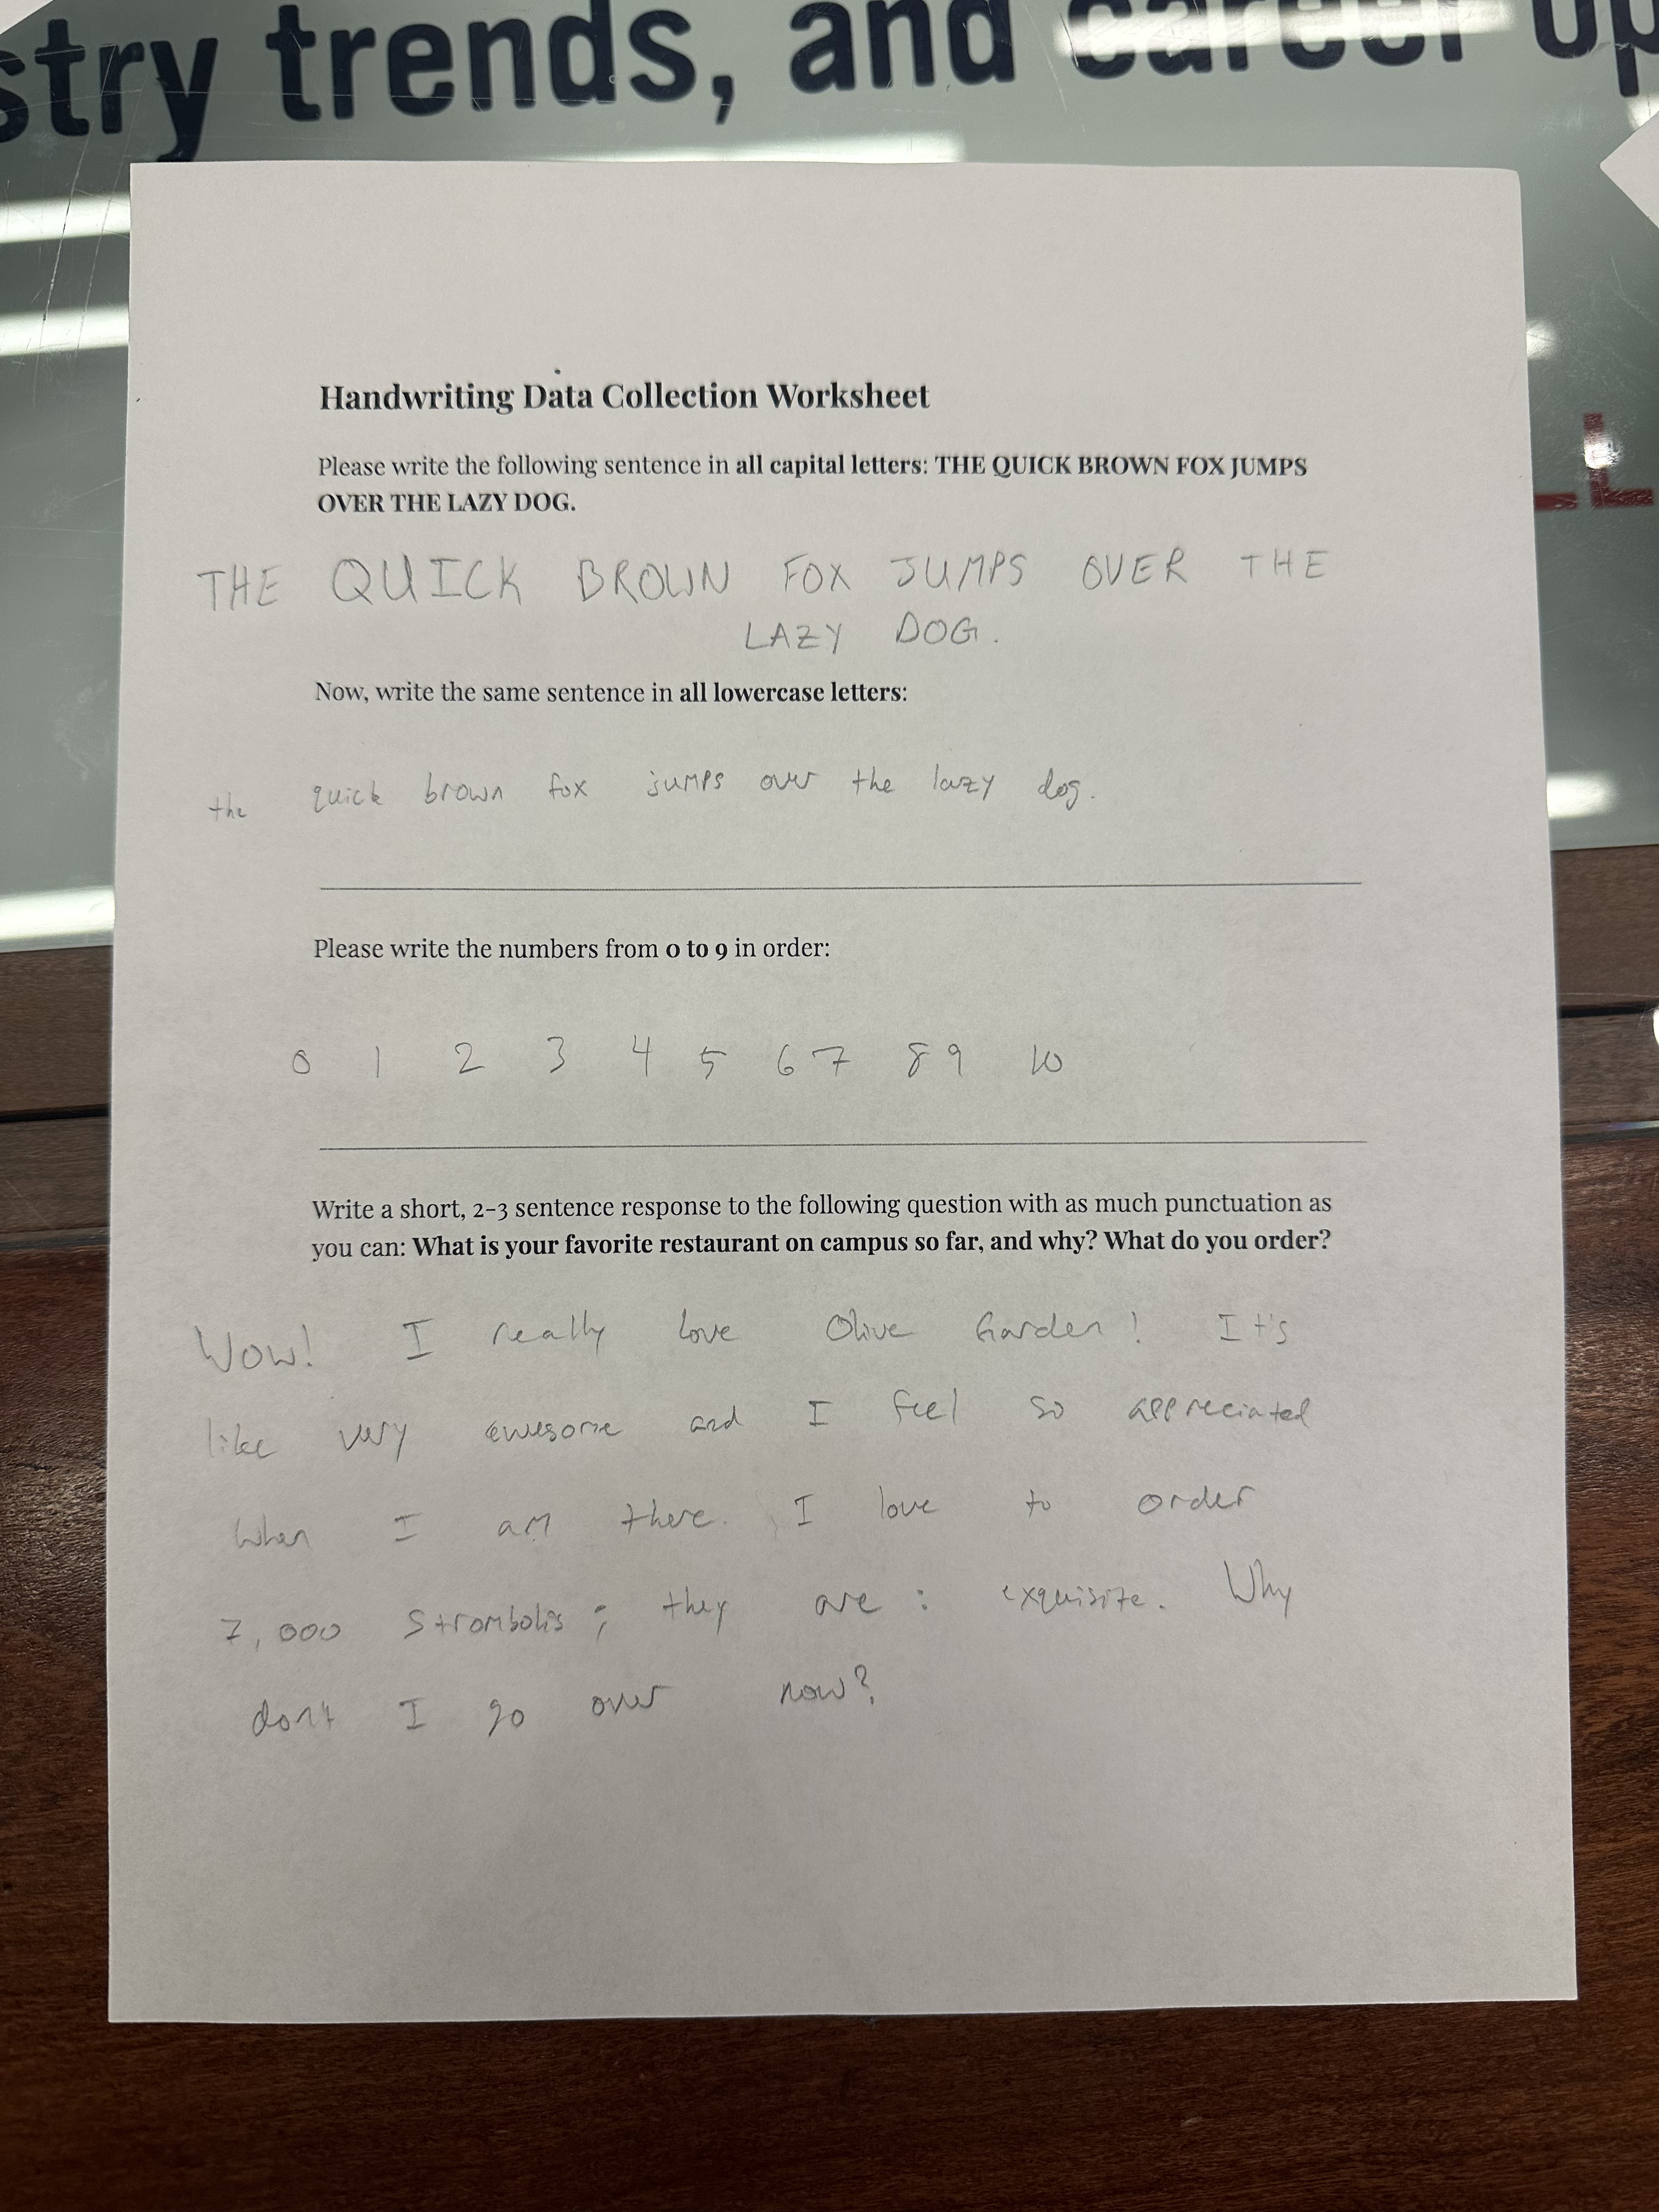 stry trends, and career op
Handwriting Data Collection Worksheet
Please write the following sentence in all capital letters: THE QUICK BROWN FOX JUMPS
OVER THE LAZY DOG.
THE QUICK BROWN FOX JUMPS OVER THE
LAZY DOG.
Now, write the same sentence in all lowercase letters:
the quick brown fox jumps over the lazy dog.
Please write the numbers from 0 to 9 in order:
0 1 2 3 4 5 6 7 8 9 10
Write a short, 2-3 sentence response to the following question with as much punctuation as
you can: What is your favorite restaurant on campus so far, and why? What do you order?
Wow! I really love Olive Garden! It's
like very awesome and I feel so appreciated
when I am there. I love to order
7,000 Strombolis; they are: exquisite. Why
don't I go over now?